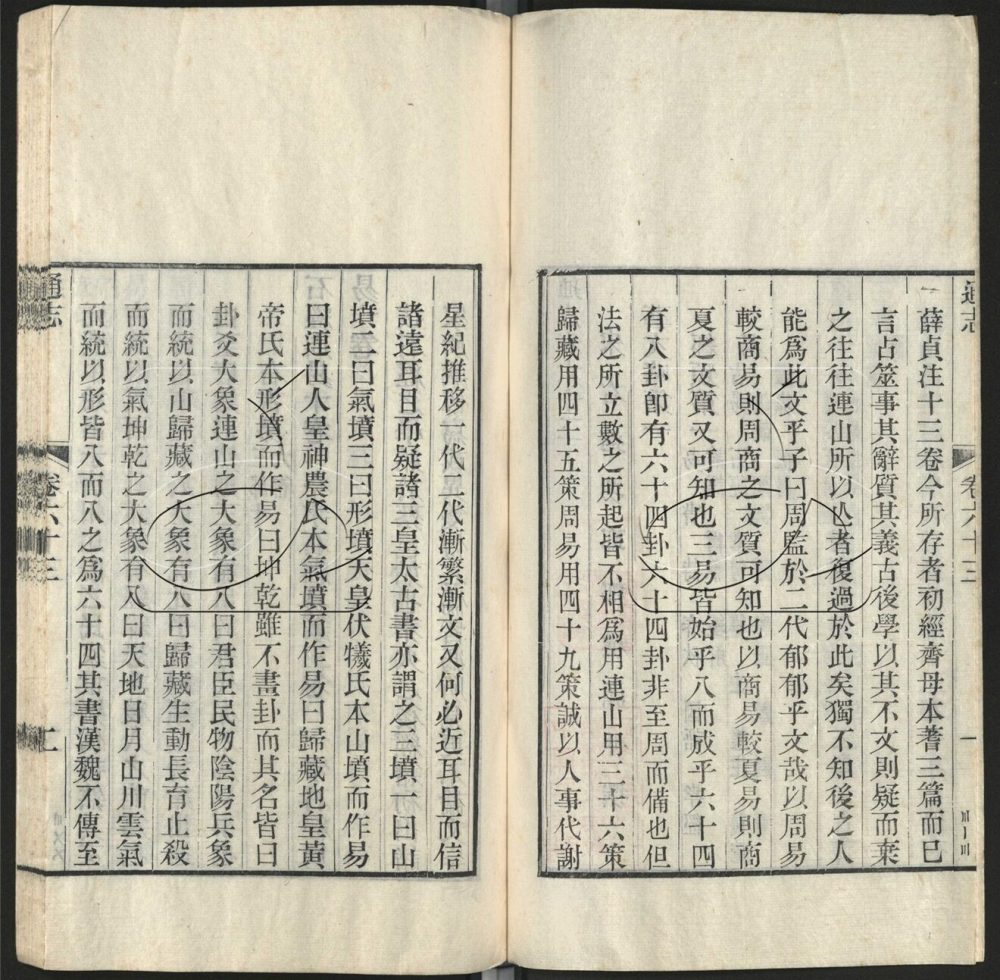 通志
卷六十三
一
薛貞注十三卷今所存者初經齊母本蓍三篇而已
言占筮事其辭質其義古後學以其不文則疑而棄
之往往連山所以亾者復過於此矣獨不知後之人
能爲此文乎子曰周監於二代郁郁乎文哉以周易
較商易則周商之文質可知也以商易較夏易則商
夏之文質又可知也三易皆始乎八而成乎六十四
有八卦卽有六十四卦六十四卦非至周而備也但
法之所立數之所起皆不相爲用連山用三十六策
歸藏用四十五策周易用四十九策誠以人事代謝
星紀推移一代一代漸繁漸文又何必近耳目而信
諸遠耳目而疑諸三皇太古書亦謂之三墳一曰山
墳二曰氣墳三曰形墳天皇伏犧氏本山墳而作易
曰連山人皇神農氏本氣墳而作易曰歸藏地皇黃
帝氏本形墳而作易曰坤乾雖不畫卦而其名皆曰
卦爻大象連山之大象有八曰君臣民物陰陽兵象
而統以山歸藏之大象有八曰歸藏生動長育止殺
而統以氣坤乾之大象有八曰天地日月山川雲氣
而統以形皆八而八之爲六十四其書漢魏不傳至
通志
卷六十三